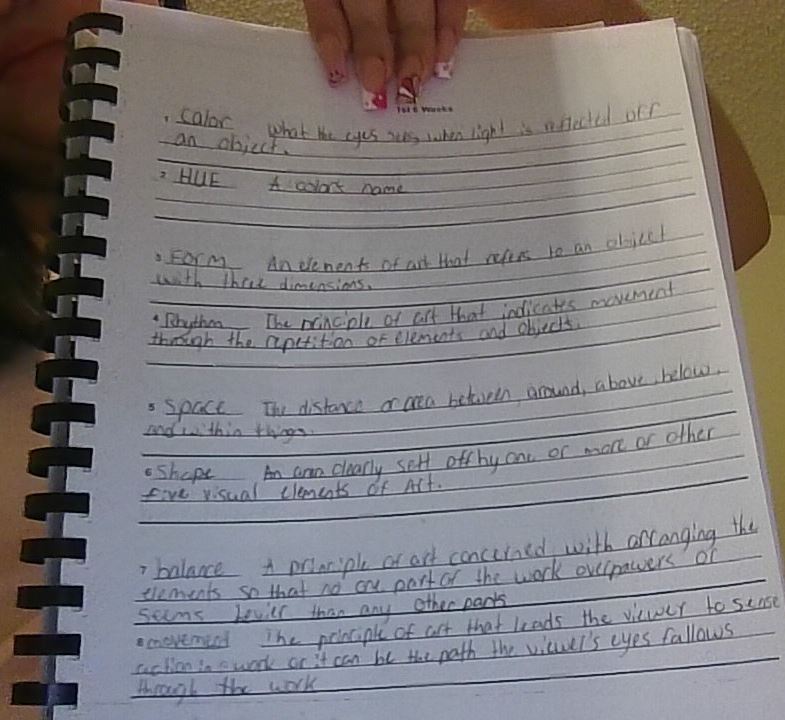 1st 6 Weeks
1 Color What the eyes sees when light is reflected off
an object.
2 HUE A color's name
3 Form An elements of art that refers to an object
with three dimensions.
4 Rhythm The principle of art that indicates movement
through the repetition of elements and objects.
5 Space The distance or area between, around, above, below,
and within things.
6 Shape An area clearly sett off by one or more or other
five visual elements of Art.
7 balance A principle of art concerned with arranging the
elements so that no one part of the work overpowers or
seems hevier than any other parts
8 movement The principle of art that leads the viewer to sense
action in a work or it can be the path the viewer's eyes fallows
through the work